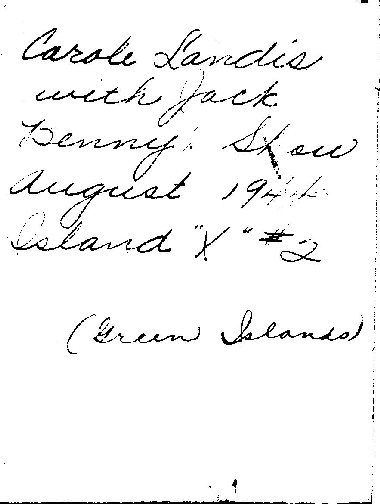 Carole Landis
with Jack
Benny's Show
August 1944
Island "X" #2
(Green Islands)